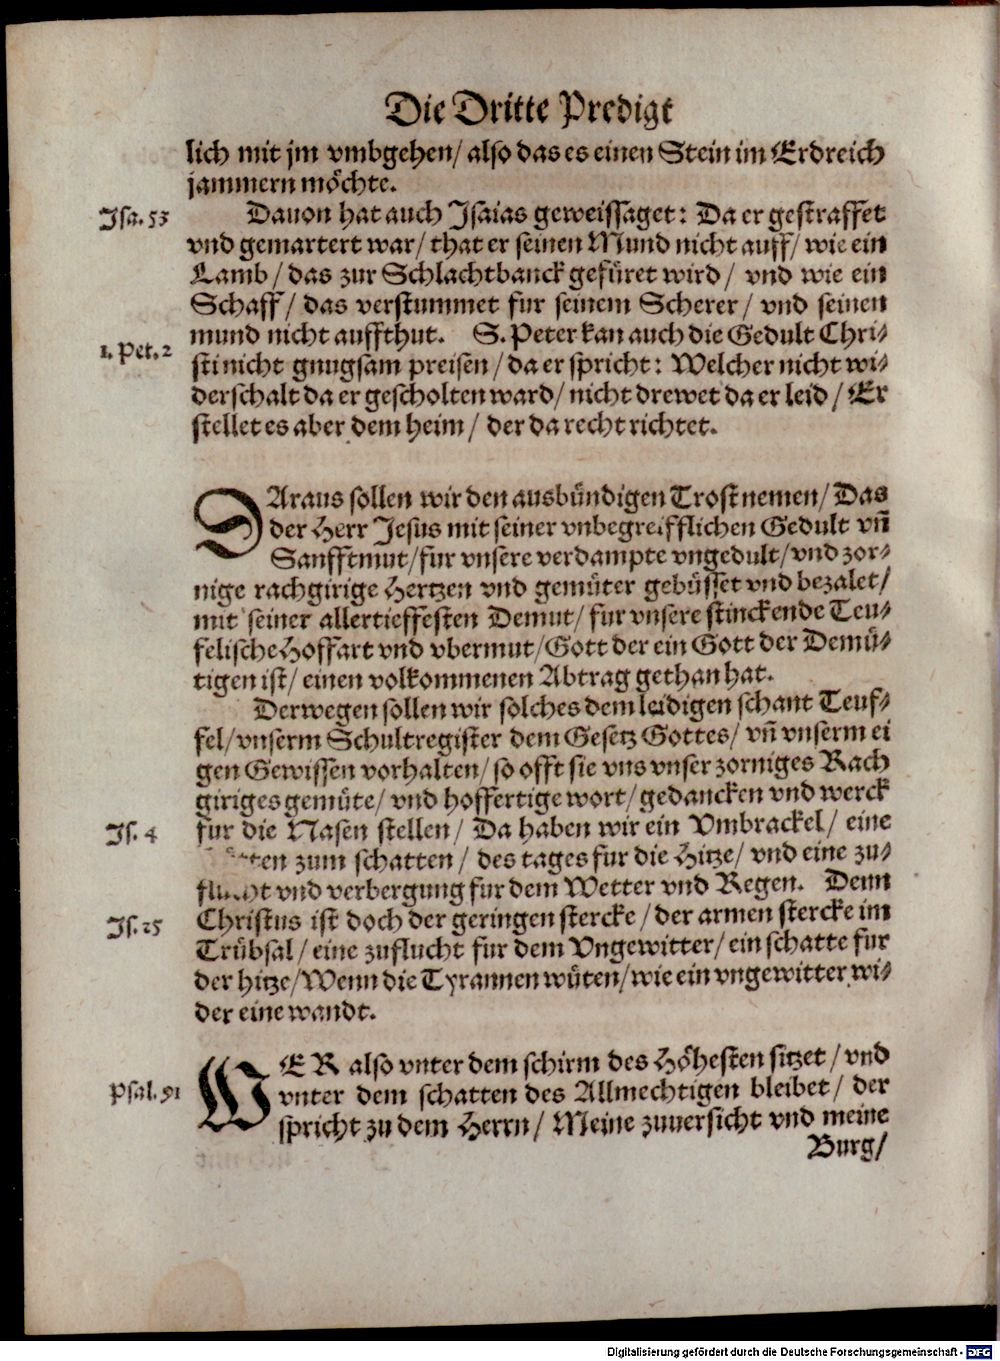 Die Dritte Predigt
lich mit jm vmbgehen/ also das es einen Stein im Erdreich
jammern möchte.
Jsa. 53
Dauon hat auch Jsaias geweissaget: Da er gestraffet
vnd gemartert war/ that er seinen Mund nicht auff/ wie ein
Lamb/ das zur Schlachtbanck gefüret wird/ vnd wie ein
Schaff/ das verstummet fur seinem Scherer/ vnd seinen
mund nicht auffthut. S. Peter kan auch die Gedult Chri-
1. Pet. 2
sti nicht gnugsam preisen/ da er spricht: Welcher nicht wi-
derschalt da er gescholten ward/ nicht drewet da er leid/ Er
stellet es aber dem heim/ der da recht richtet.
DAraus sollen wir den ausbündigen Trost nemen/ Das
der Herr Jesus mit seiner vnbegreifflichen Gedult vñ
Sanfftmut/ fur vnsere verdampte vngedult/ vnd zor-
nige rachgirige Hertzen vnd gemüter gebüsset vnd bezalet/
mit seiner allertieffesten Demut/ fur vnsere stinckende Teu-
felische Hoffart vnd vbermut/ Gott der ein Gott der Demü-
tigen ist/ einen volkommenen Abtrag gethan hat.
Derwegen sollen wir solches dem leidigen schant Teuf-
fel/ vnserm Schultregister dem Gesetz Gottes/ vñ vnserm ei
gen Gewissen vorhalten/ so offt sie vns vnser zorniges Rach
giriges gemüte/ vnd hoffertige wort/ gedancken vnd werck
Js. 4
fur die Nasen stellen/ Da haben wir ein Vmbrackel/ eine
zum schatten/ des tages fur die Hitze/ vnd eine zu-
flucht vnd verbergung fur dem Wetter vnd Regen. Denn
Js. 25
Christus ist doch der geringen stercke/ der armen stercke im
Trübsal/ eine zuflucht fur dem Vngewitter/ ein schatte fur
der hitze/ Wenn die Tyrannen wüten/ wie ein vngewitter wi-
der eine wandt.
WER also vnter dem schirm des Höhesten sitzet/ vnd
Psal. 91
vnter dem schatten des Allmechtigen bleibet/ der
spricht zu dem Herrn/ Meine zuuersicht vnd meine
Burg/
Digitalisierung gefördert durch die Deutsche Forschungsgemeinschaft - DFG